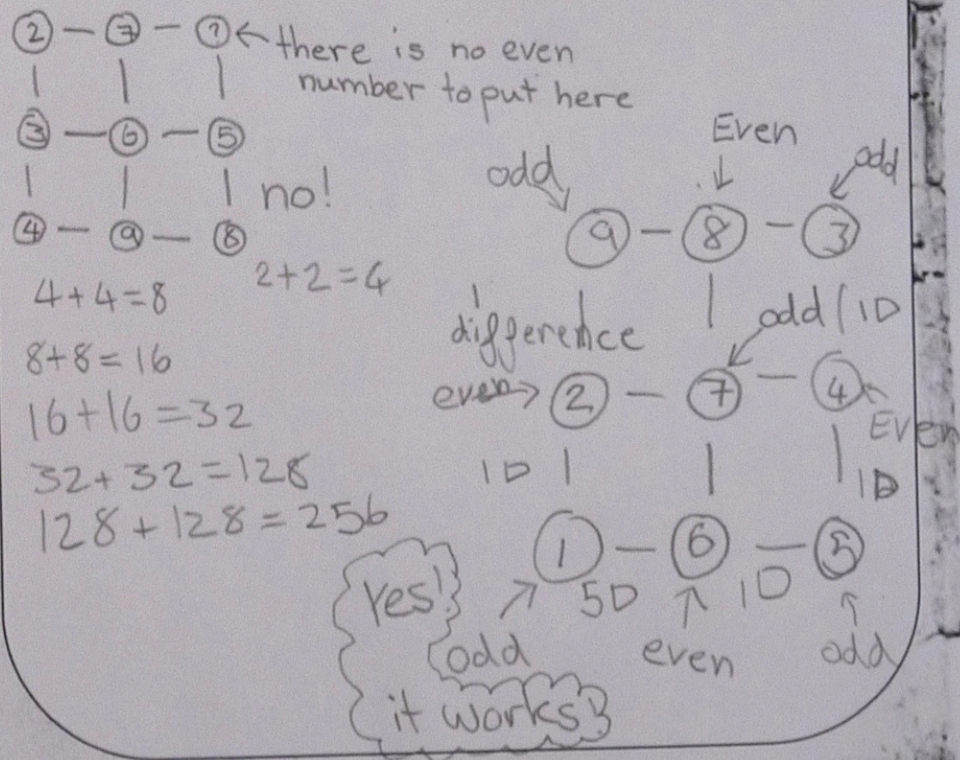 ② — ⑦ — ① ← there is no even
number to put here
③ — ⑥ — ⑤
no!
④ — ⑨ — ⑧
2+2=4
4+4=8
8+8=16
16+16=32
32+32=128
128+128=256
odd
Even
odd
⑨ — ⑧ — ③
1
difference
odd/1D
even → ② — ⑦ — ④
Even
1D
1D
① — ⑥ — ⑤
5D
1D
odd
even
odd
Yes!
it works!